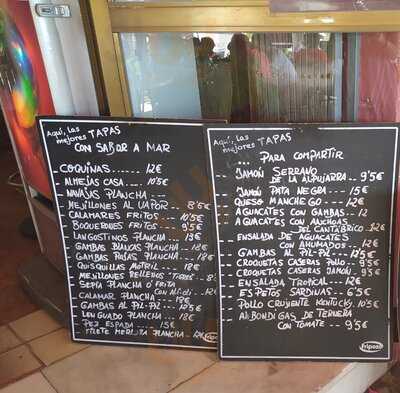 Aquí, las
mejores TAPAS
CON SABOR A MAR
COQUINAS...... 12€
ALMEJAS CASA.... 10'5€
NAVAJAS PLANCHA
MEJILLONES AL VAPOR.. 8'5€
CALAMARES FRITOS... 10'5€
BOQUERONES FRITOS... 9'5€
LANGOSTINOS PLANCHA...
GAMBAS BLANCAS PLANCHA.. 18€
GAMBAS ROJAS PLANCHA... 18€
QUISQUILLAS MOTRIL... 18€
MEJILLONES RELLENOS
SEPIA PLANCHA O FRITA
CALAMAR PLANCHA... 18€
GAMBAS AL PIL-PIL.. 12'5€
LENGUADO PLANCHA... 18€
PEZ ESPADA..... 15€
FILETE MERLUZA PLANCHA... 12€
Aquí, las
mejores TAPAS
... PARA COMPARTIR
JAMÓN SERRANO
DE LA ALPUJARRA.. 9'5€
JAMÓN PATA NEGRA.... 15€
QUESO MANCHEGO... 12€
AGUACATES CON GAMBAS.. 12
AGUACATES CON ANCHOAS
DEL CANTÁBRICO.. 12€
ENSALADA DE AGUACATES
CON AHUMADOS.. 12€
GAMBAS AL PIL-PIL... 12'5€
CROQUETAS CASERAS POLLO.. 9'5€
CROQUETAS CASERAS JAMÓN.. 9'5€
ENSALADA TROPICAL.... 12€
ESPETOS SARDINAS... 6'5€
POLLO CRUJIENTE KENTUCKY. 10'5€
ALBONDIGAS DE TERNERA
CON TOMATE... 9'5€
fripozo